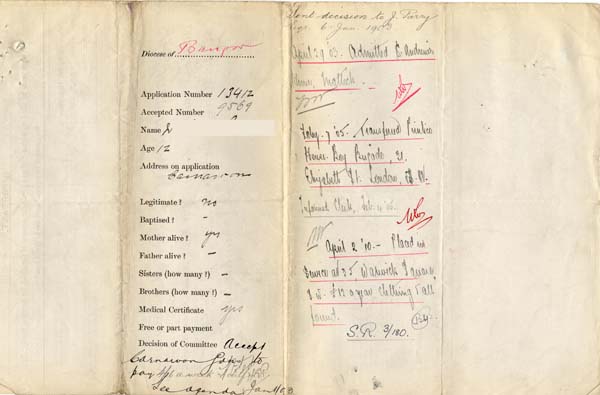 Diocese of Bangor
Application Number 13412
Accepted Number 9569
Name
Age 12
Address on application
Carnarvon
Legitimate? no
Baptised? -
Mother alive? yes
Father alive? -
Sisters (how many?) -
Brothers (how many?) -
Medical Certificate yes
Free or part payment
Decision of Committee Accept
Carnarvon
pay a week
See agenda Jan
Sent decision to J. Parry
6 Jan 1903
April 29 03. Admitted S. Andrew's
Matlock.
Feby. 7 '05. Transferred
House Boy Brigade, 21.
Elizabeth St. London, S.W.
Informed Clerk, Feb. 6 '05.
April 2 '00 - Placed in
Service at 35 Warwick Square
S.W. £12 a year clothing & all
found.
S.R. 3/180.